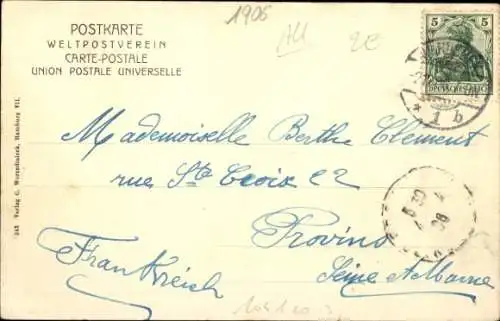 1906
POSTKARTE
WELTPOSTVEREIN
CARTE-POSTALE
UNION POSTALE UNIVERSELLE
5 5
DEUTSCHES REICH
* 1 b
Mademoiselle Berthe Clement
rue Ste Croix 22
Provins
Seine et Marne
Frankreich
Verlag C. Worzedialek, Hamburg VII.